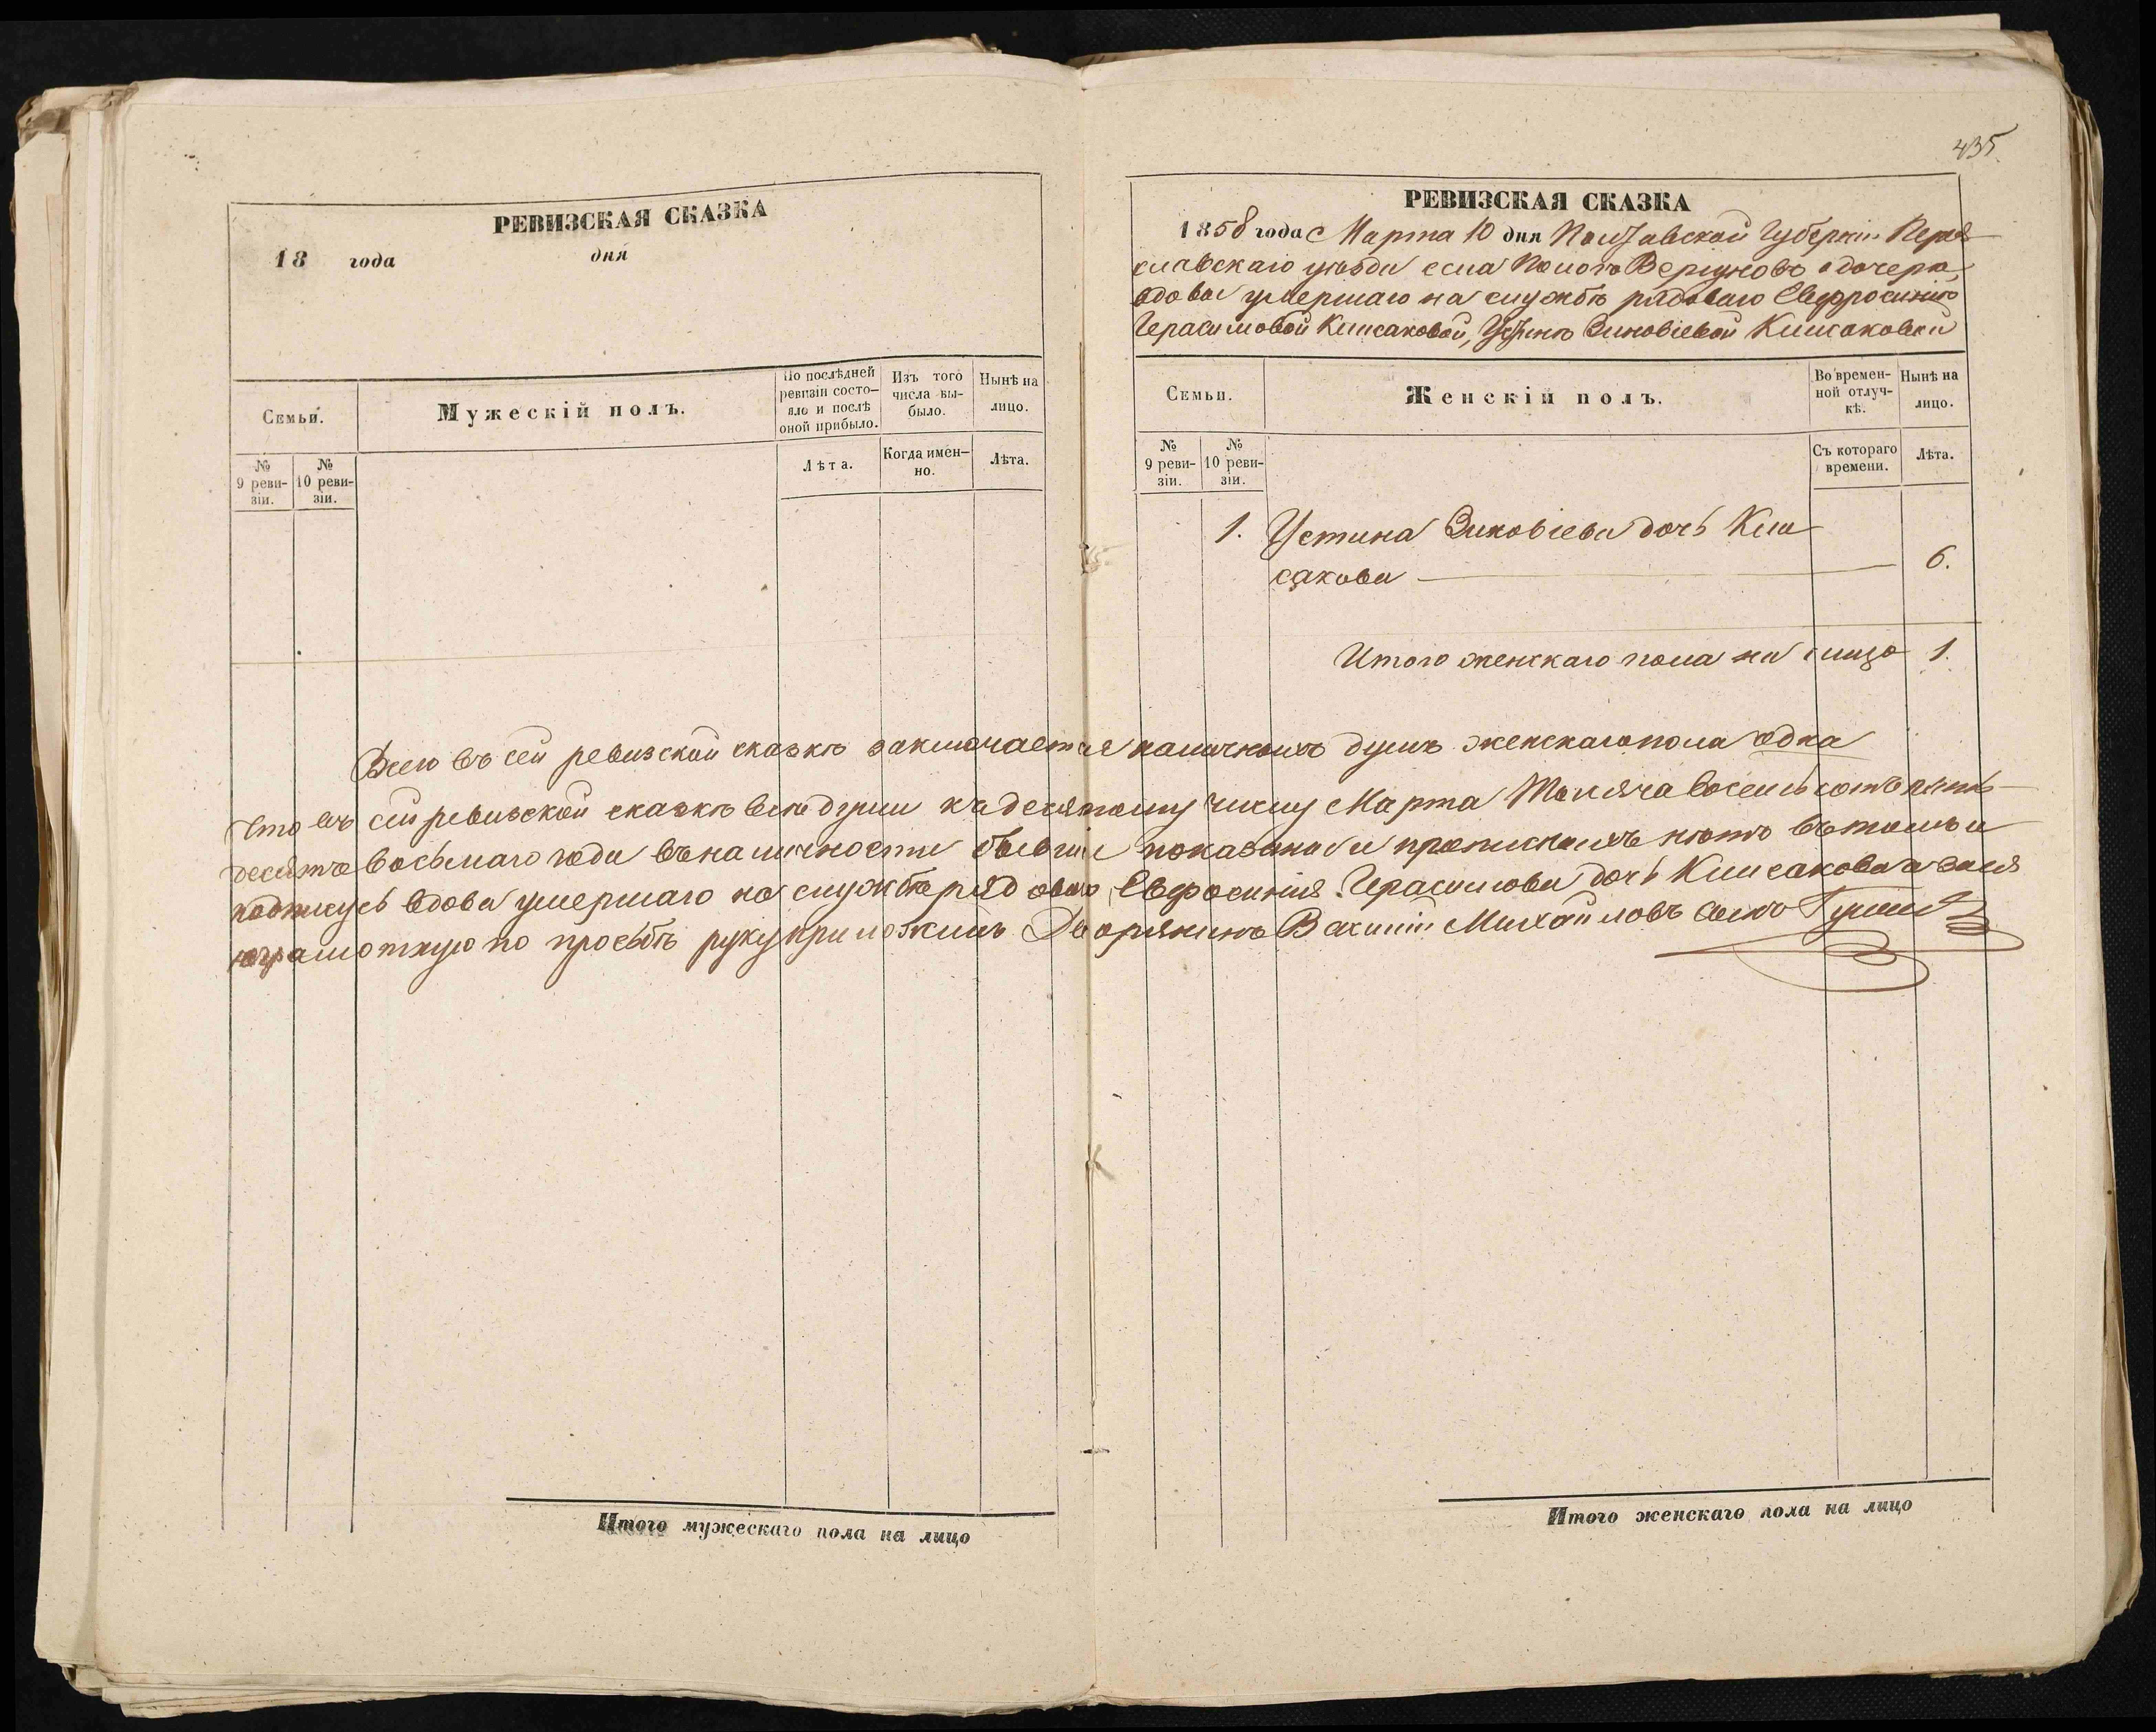 435.
РЕВИЗСКАЯ СКАЗКА
18 года дня
Семьи.
Мужескій полъ.
По послѣдней ревизіи состояло и послѣ оной прибыло.
Изъ того числа выбыло.
Нынѣ на лицо.
№ 9 ревизіи.
№ 10 ревизіи.
Лѣта.
Когда именно.
Лѣта.
РЕВИЗСКАЯ СКАЗКА
1858 года Марта 10 дня Полтавской Губерніи Перея
славскаго уѣзда села Полого Вергуновъ о дочерѣ,
вдовы умершаго на службѣ рядоваго Евфросиніи
Герасимовой Клисаковой, Устинѣ Зиновіевой Клисаковой
Семьи.
Женскій полъ.
Во временной отлучкѣ.
Нынѣ на лицо.
№ 9 ревизіи.
№ 10 ревизіи.
Съ котораго времени.
Лѣта.
1. Устина Зиновіева дочь Кли
сакова 6.
Итого женскаго пола на лицо 1.
Всего въ сей ревизской сказкѣ заключается наличныхъ душъ женскаго пола одна
Что въ сей ревизской сказкѣ всѣ души къ десятому числу Марта Тысяча восемь сотъ пять
десятъ восьмаго года въ наличности бывшіе показаны и прописныхъ нѣтъ въ томъ и
подпишусь вдова умершаго на службѣ рядоваго Евфросинія Герасимова дочь Клисакова а за нея
неграмотную по просьбѣ руку приложилъ Дворянинъ Михайловъ сынъ
Итого мужескаго пола на лицо
Итого женскаго пола на лицо